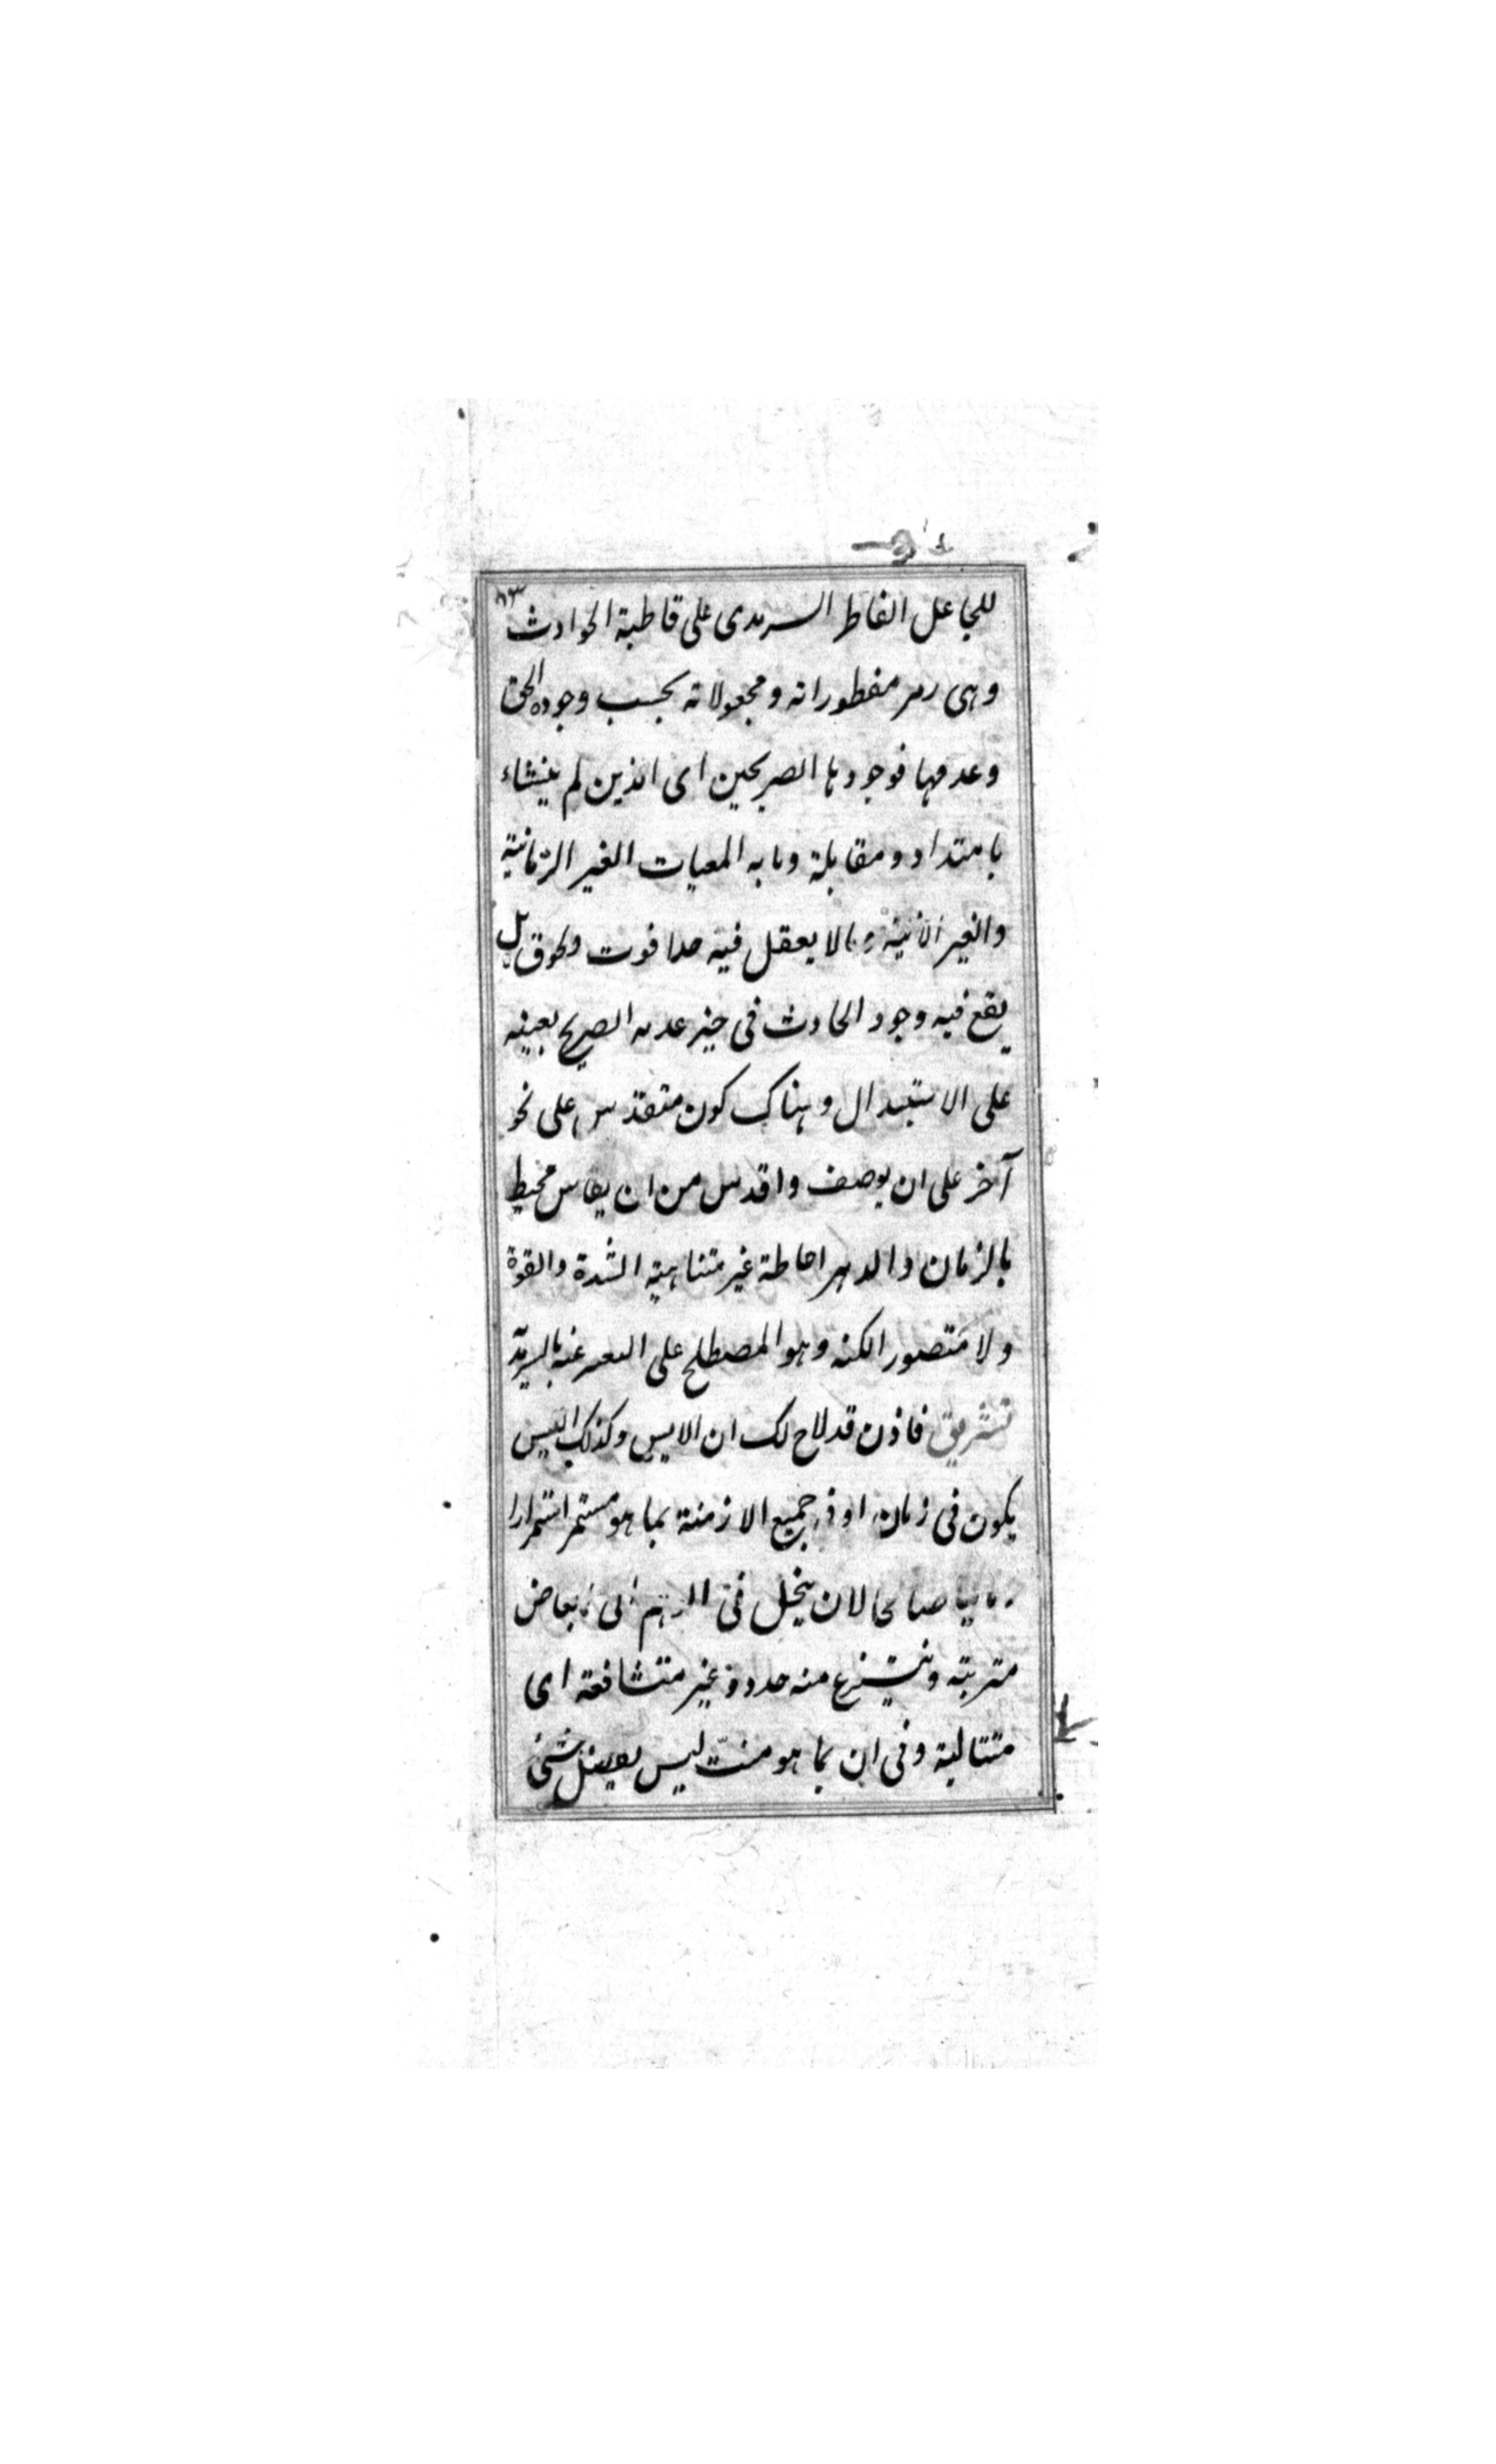 للجاعل الفاطر السرمدى على قاطبة الحوادث
وهى زمر مفطوراته ومجعولاته بحسب وجوده الحق
وعدمها فوجودها الصريحين اى الذين لم ينشاء
بامتداد ومقابلة وما به المعيات الغير الزمانية
والغير الآنية لا يعقل فيه حدا فوت ولحوق بل
يقع فيه وجود الحادث فى حيز عدمه الصريح بعينه
على الاستبدال وهناك كون متقدس على نحو
آخر على ان يوصف واقدس من ان يقاس محيط
بالزمان والدهر احاطة غير متناهية الشدة والقوة
ولا متصور الكنه وهو المصطلح على التعبير عنه بالسرمد
تشريق فاذن قد لاح لك ان الايس وكذلك الليس
يكون فى زمان او فى جميع الازمنة بما هو مستمر استمرارا
زمانيا صالحا لان ينحل فى الوهم الى ابعاض
مترتبة وينتزع منه حدود غير متشافعة اى
متتالية وفى ان بما هو منبت ليس يعقل شئ